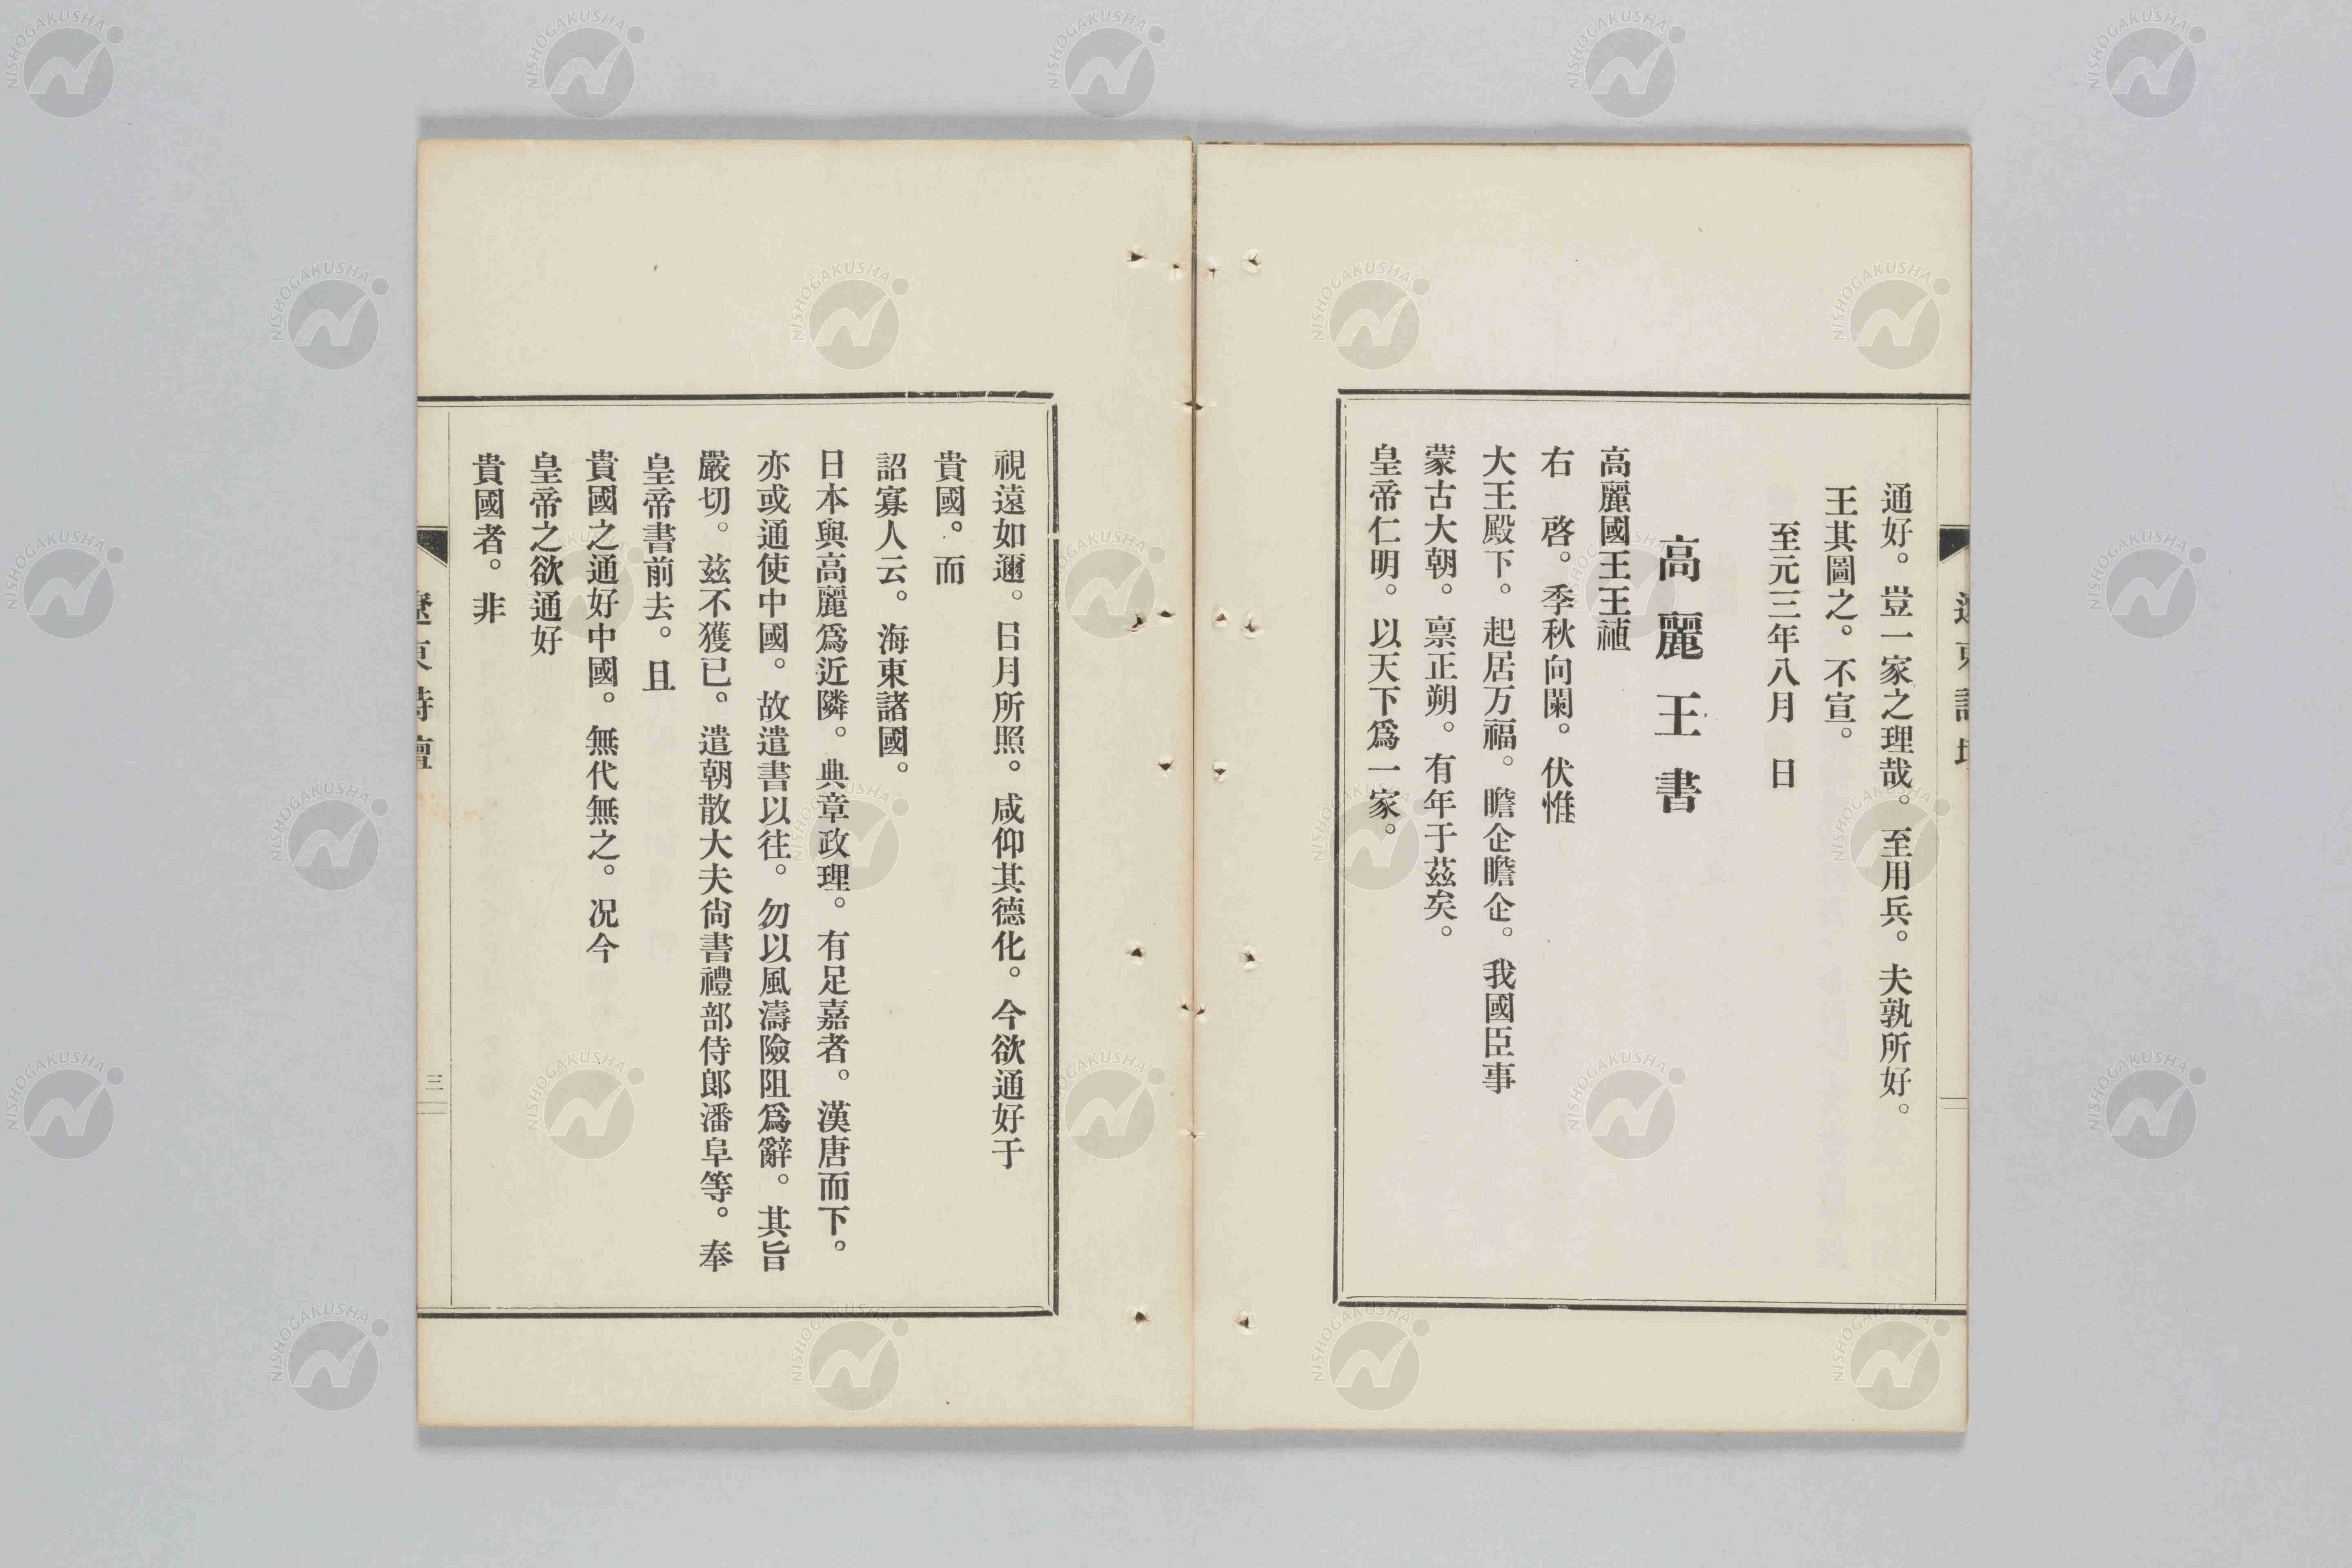 通好。豈一家之理哉。至用兵。夫孰所好。
王其圖之。不宣。
至元三年八月　日
高麗王書
高麗國王王禃
右　啓。季秋向闌。伏惟
大王殿下。起居万福。瞻企瞻企。我國臣事
蒙古大朝。禀正朔。有年于茲矣。
皇帝仁明。以天下爲一家。
視遠如邇。日月所照。咸仰其德化。今欲通好于
貴國。而
詔寡人云。海東諸國。
日本與高麗爲近隣。典章政理。有足嘉者。漢唐而下。
亦或通使中國。故遣書以往。勿以風濤險阻爲辭。其旨
嚴切。茲不獲已。遣朝散大夫尙書禮部侍郞潘阜等。奉
皇帝書前去。且
貴國之通好中國。無代無之。况今
皇帝之欲通好
貴國者。非
遼東詩壇
三
NISHOGAKUSHA